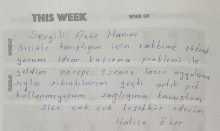 THIS WEEK
WEEK OF
MONDAY
TUESDAY
Sevgili Ayşe Hanım
Sizinle tanıştığım için rabbime
yorum idrar kaçırma problemi ile
geldim perepe lazer uygulama
sıkıntılarım geçti artık ped
kullanmıyorum sağlığıma kavuştum
Size çok çok teşekkür ederim
Hatice